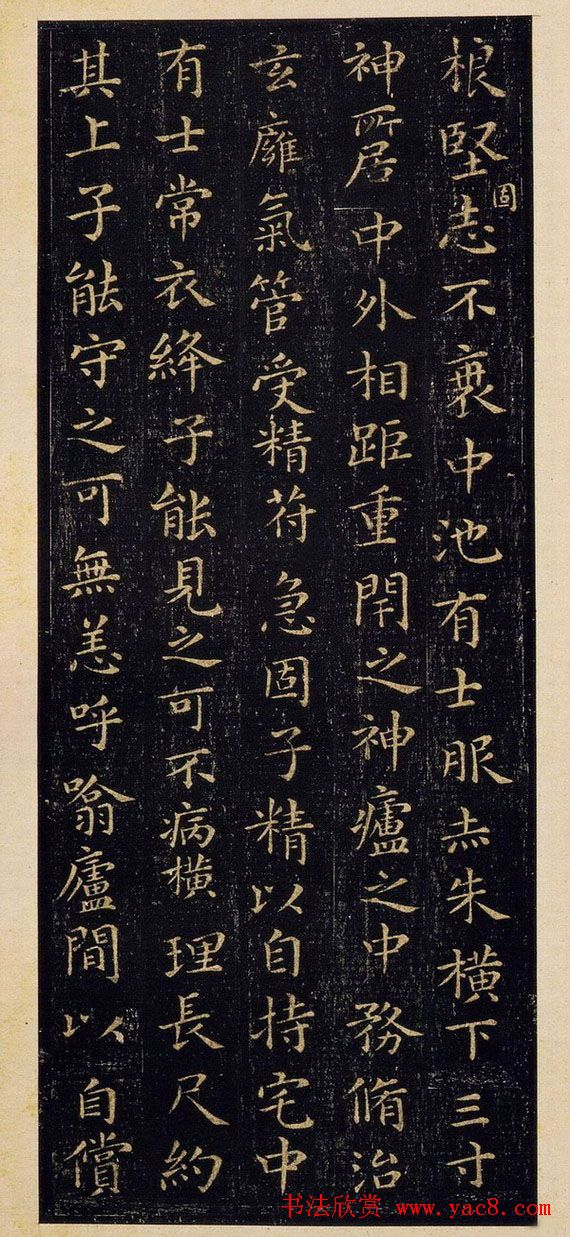 根堅固志不衰中池有士服赤朱橫下三寸
神所居中外相距重閇之神廬之中務脩治
玄廱氣管受精苻急固子精以自持宅中
有士常衣絳子能見之可不病橫理長尺約
其上子能守之可無恙呼噏廬間以自償
书法欣赏 www.yac8.com